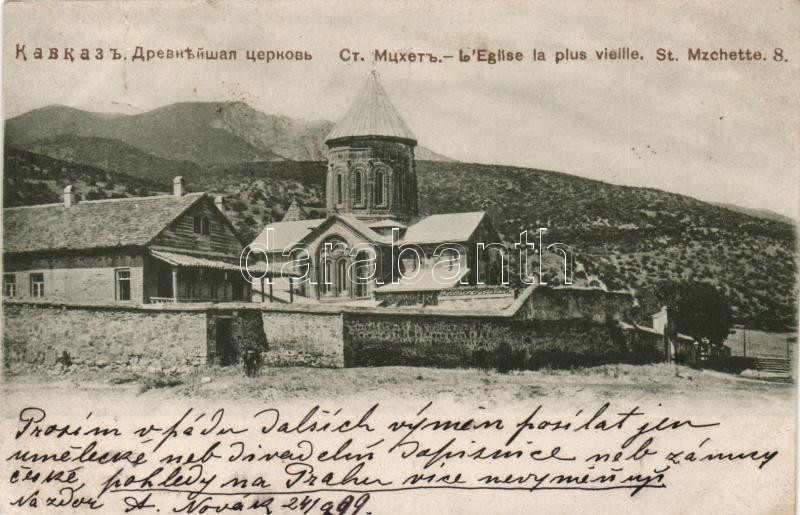 Кавказъ. Древнѣйшая церковь Ст. Мцхетъ.– L'Eglise la plus vieille. St. Mzchette. 8.
darabanth
Prosím v pádu dalších výměn posílat jen
umělecké neb divadelní dopisnice neb zámky
české, pohledy na Prahu více nevyměňuji
Na zdar A. Novák 24/9 99.